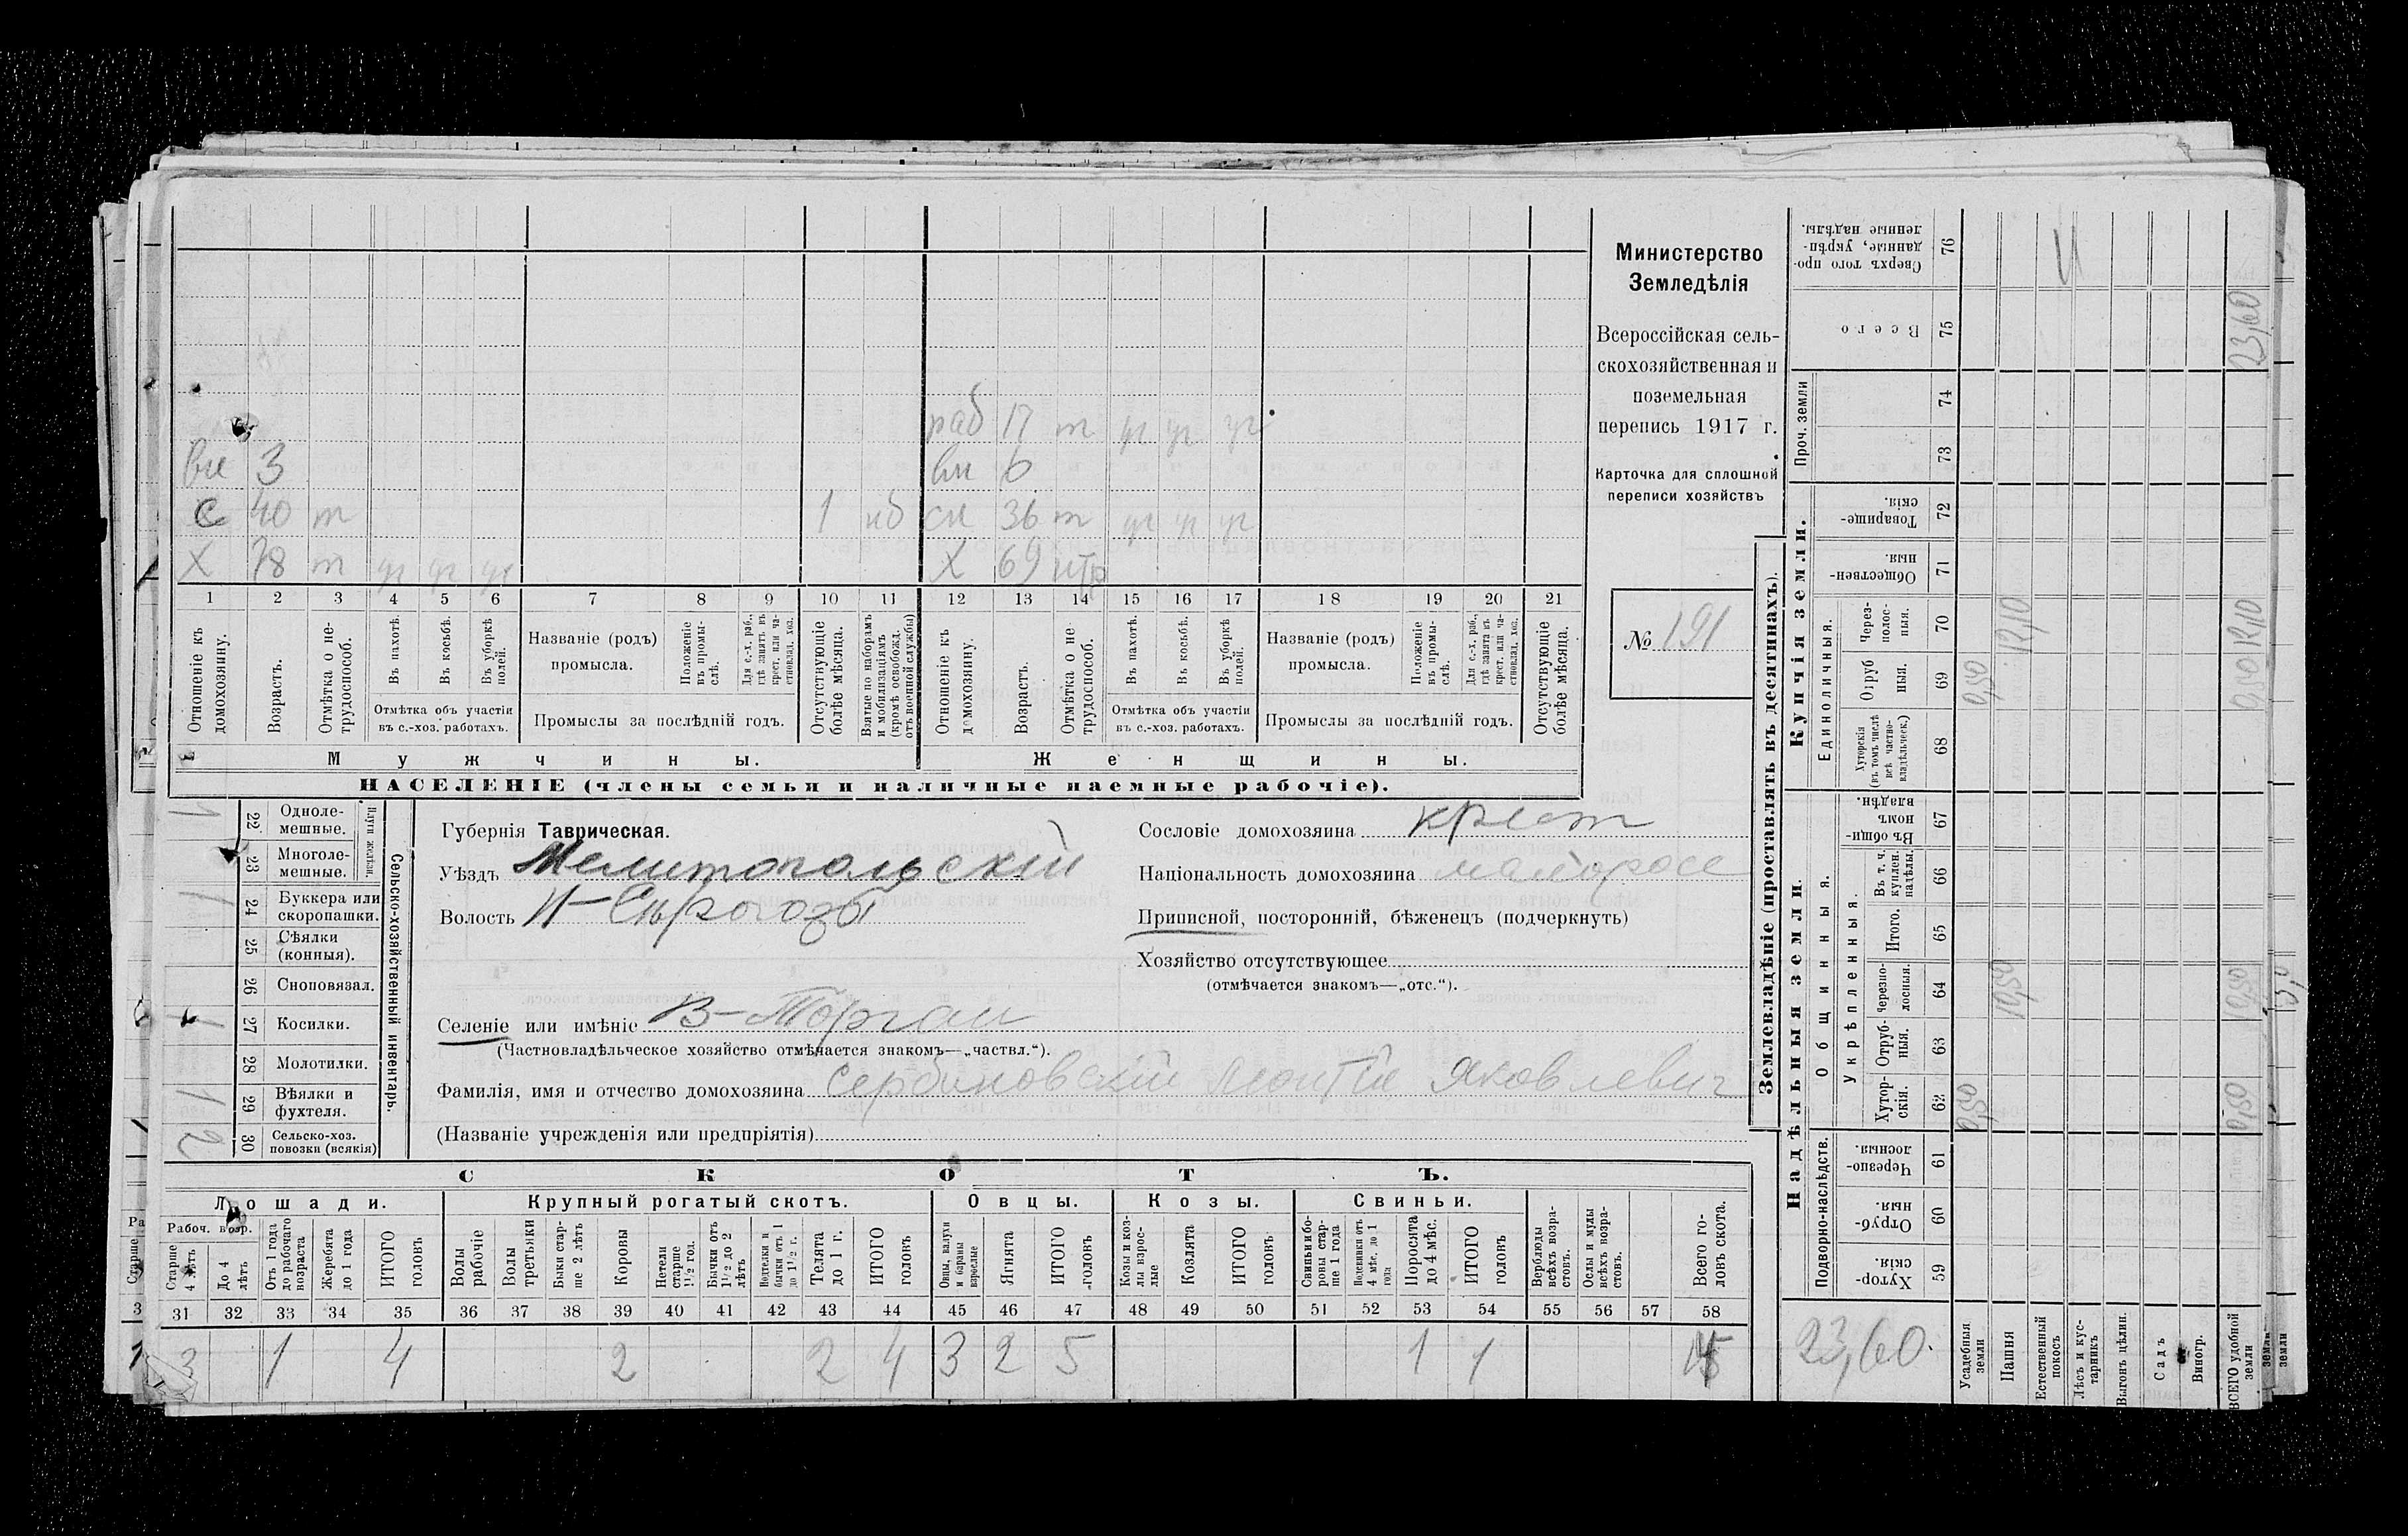 Министерство
Земледѣлія
Всероссійская сель-
скохозяйственная и
поземельная
перепись 1917 г.
Карточка для сплошной
переписи хозяйствъ
№ 191
раб 17 т уч уч уч
вн 3
вн 6
с 40 т 1 нб
сн 36 т уч уч уч
х 78 т уч уч уч
х 69 нтр
1 2 3 4 5 6 7 8 9 10 11 12 13 14 15 16 17 18 19 20 21
Отношеніе къ домохозяину.
Возрастъ.
Отмѣтка о не-трудоспособ.
Въ пахотѣ.
Въ косьбѣ.
Въ уборкѣ полей.
Отмѣтка объ участіи
въ с.-хоз. работахъ.
Названіе (родъ)
промысла.
Положеніе въ промы-слѣ.
Для с.-х. раб., гдѣ занятъ въ крест. или ча-стновлад. хоз.
Промыслы за послѣдній годъ.
Отсутствующіе болѣе мѣсяца.
Взятые по наборамъ и мобилизаціямъ (кромѣ освобожд. отъ военной службы)
Отношеніе къ домохозяину.
Возрастъ.
Отмѣтка о не трудоспособ.
Въ пахотѣ.
Въ косьбѣ.
Въ уборкѣ полей.
Отмѣтка объ участіи
въ с.-хоз. работахъ.
Названіе (родъ)
промысла.
Положеніе въ промы-слѣ.
Для с.-х. раб., гдѣ занята въ крест. или ча-стновлад. хоз.
Промыслы за послѣдній годъ.
Отсутствующіе болѣе мѣсяца.
Мужчины.
Женщины.
НАСЕЛЕНІЕ (члены семьи и наличные наемные рабочіе).
Сельско-хозяйственный инвентарь.
1 22 Одноле-мешные.
23 Многоле-мешные.
1 24 Буккера или скоропашки.
25 Сѣялки (конныя).
26 Сноповязал.
1 27 Косилки.
28 Молотилки.
1 29 Вѣялки и фухтеля.
2 30 Сельско-хоз. повозки (всякія)
Губернія Таврическая.
Уѣздъ Мелитопольскій
Волость Н-Сѣрогозы
Селеніе или имѣніе В-Торгаи
(Частновладѣльческое хозяйство отмѣчается знакомъ—„частвл.“).
Фамилія, имя и отчество домохозяина Сербиновскій Леонтій Яковлевич
(Названіе учрежденія или предпріятія)
Сословіе домохозяина крест
Національность домохозяина малоросс
Приписной, посторонній, бѣженецъ (подчеркнуть)
Хозяйство отсутствующее
(отмѣчается знакомъ—„отс.“).
СКОТЪ.
Лошади.
Крупный рогатый скотъ.
Овцы.
Козы.
Свиньи.
Рабоч. возр.
Старше 4 лѣтъ
До 4 лѣтъ
Отъ 1 года до рабочаго возраста
Жеребята до 1 года
ИТОГО головъ
Волы рабочіе
Волы третьяки
Быки стар-ше 2 лѣтъ
Коровы
Нетели старше 1½ год.
Бычки отъ 1½ до 2 лѣтъ
Подтелки и бычки отъ 1 до 1½ г.
Телята до 1 г.
ИТОГО головъ
Овцы, валухи и бараны взрослые
Ягнята
ИТОГО головъ
Козы и коз-лы взрос-лые
Козлята
ИТОГО головъ
Свиньи и бо-ровы стар-ше 1 года
Подсвинки отъ 4 мѣс. до 1 года
Поросята до 4 мѣс.
ИТОГО головъ
Верблюды всѣхъ возра-стовъ.
Ослы и мулы всѣхъ возра-стовъ.
Всего го-ловъ скота.
31 32 33 34 35 36 37 38 39 40 41 42 43 44 45 46 47 48 49 50 51 52 53 54 55 56 57 58
3 1 4 2 2 4 3 2 5 1 1
Землевладѣніе (проставлять въ десятинахъ).
Надѣльныя земли.
Купчія земли.
Проч. земли
Подворно-наслѣдств.
Общинныя.
Укрѣпленныя.
Единоличныя.
Хутор-скія. 59
Отруб-ныя 60
Черезпо-лосныя 61
Хутор-скія. 62
Отруб-ныя. 63
Черезпо-лосныя. 64
Итого. 65
Въ т. ч. куплен. надѣлы. 66
Въ общин-номъ владѣн. 67
Хуторскія (въ томъ числѣ всѣ частно-владѣльческ.) 68
Отруб ныя. 69
Через-полос-ныя. 70
Обществен-ныя. 71
Товарище-скія. 72
73
74
Всего 75
Сверхъ того про-данные, укрѣп-ленные надѣлы. 76
23,60
Усадебныя земли 0,50 0,50
Пашня 10,50 12,10
Естественный покосъ
Лѣсъ и кус-тарникъ
Выгонъ цѣлин.
Садъ
Виногр.
ВСЕГО удобной земли 0,50 10,50 0,50 12,10 23,60